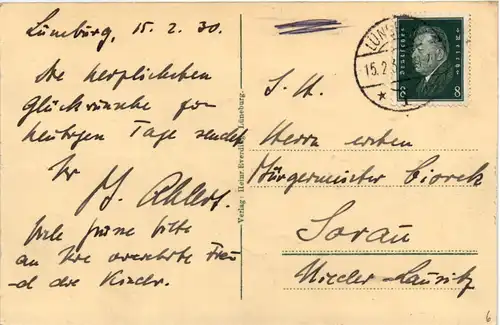 Lüneburg, 15. 2. 30.
Die herzlichsten
Glückwünsche zum
heutigen Tage sendet
Ihr
H. Ahlers.
Viele Grüsse bitte
an Ihre verehrte Frau
und die Kinder.
Verlag: Heinr. Everding, Lüneburg.
LÜN
15.2.3
Deutsches
Reich
8
S. H.
Herrn ersten
Bürgermeister
Sorau
Nieder-Lausitz
6